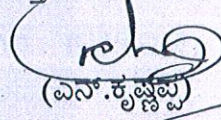 (ಎನ್.ಕೃಷ್ಣಪ್ಪ)